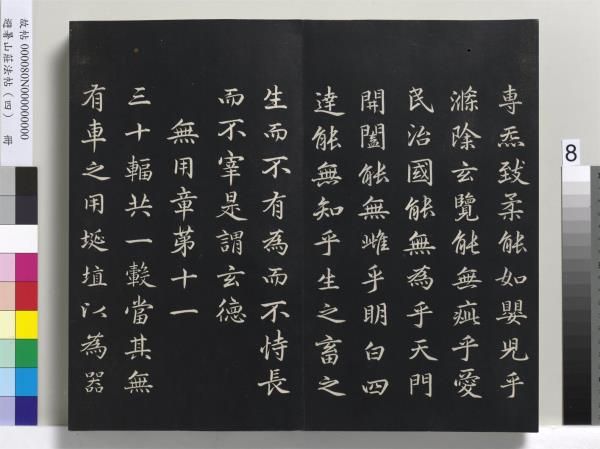 專炁致柔能如嬰兒乎
滌除玄覽能無疵乎愛
民治國能無為乎天門
開闔能無雌乎明白四
達能無知乎生之畜之
生而不有為而不恃長
而不宰是謂玄德
無用章第十一
三十輻共一轂當其無
有車之用埏埴以為器
故帖 000080N000000000
避暑山莊法帖（四） 冊
8